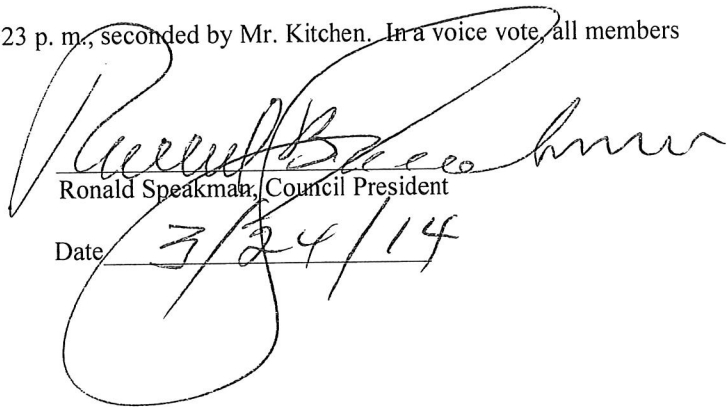 23 p. m., seconded by Mr. Kitchen.  In a voice vote, all members
Ronald B Speakman
Ronald Speakman, Council President
Date 3/24/14